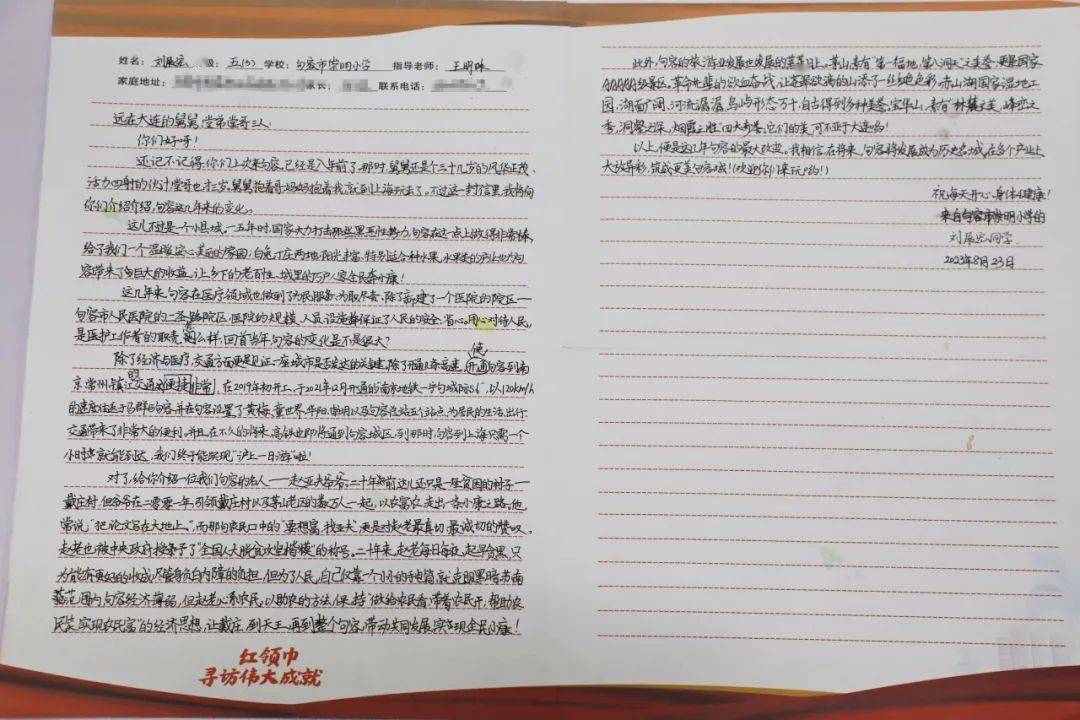 姓名：刘宸宏 级：五(5) 学校：句容市崇明小学 指导老师：王明珠
家庭地址： 家长： 联系电话：
远在大连的舅舅、堂弟、堂哥三人：
你们好呀！
还记不记得，你们上次来句容，已经是八年前了，那时，舅舅还是个三十几岁的风华正茂、
活力四射的伙计，堂哥也才三岁，舅舅抱着哥，妈妈抱着我，玩到上海玩去了。不过这一封信里，我将向
你们介绍介绍，句容这几年来的变化。
这儿不过是一个小县城，一五年时，国家大力打击那些黑恶性势力，句容在这一点上做得非常棒，
给了我们一个温暖、安心、美丽的家园，白兔、丁庄两地，阳光丰富，特别适合种水果，水果类的产业也为句
容带来了巨大的收益，让乡下的老百性、城里的万户家全民奔小康！
这几年来，句容在医疗领域也做到了为民服务，为最尽责，除了新建了一个医院的院区——
句容市人民医院的二圣路院区，医院的规模、人员、设施都保证了人民的安全、省心。用心对待人民，
是医护工作者的职责，怎么样，回首当年，句容的变化是不是很大？
除了经济与医疗，交通方面更是见证一座城市是否发达的关键，除了开通、使句容到南
京、常州、镇江的交通便捷非常，在2019年初开工，于2021年12月开通的南京地铁一宁句城际S6，以120km/h
的速度往返于马群与句容，并在句容设置了黄梅、童世界、华阳、崇明以及句容这站五个站点，为居民的生活、出行、
交通带来了非常大的便利。并且，在不久的将来，高铁也即将通到句容城区，到那时，句容到上海只需一个
小时就能到达，我们终于能实现“沪上一日游”啦！
对了，给你介绍一位我们句容的名人——赵亚夫爷爷，二十年前，这儿还只是一座贫困的村子——
戴庄村，但爷爷在二零零一年，引领戴庄村以及茅山老区的数万人一起，以农富农，走出一条小康之路。他
常说：“把论文写在大地上。”，而那句农民口中的“要想富，找亚夫”，更是对赵老最真切、最诚切的赞叹。
赵老也被中央政府授予了“全国人大脱贫攻坚楷模”的称号。二十年来，赵老每日每夜，起早贪黑，只
为能有更好的收成，尽管身负白内障的负担，但为了人民，自己仅靠一个小小的手电筒，就克服黑暗，苏南
范围内，句容经济薄弱，但赵老心系农民，以助农的方法，保持“做给农民看，带着农民干，帮助农
民卖，实现农民富”的经济思想，让戴庄，到天王，再到整个句容，带动共同发展，实现全民小康！
红领巾
寻访伟大成就
此外，句容的旅游业发展也发展的蒸蒸日上，茅山素有“第一福地，第八洞天”之美誉，更是国家
AAAAA级景区。革命先辈的浴血奋战，让苍翠欲滴的山添了一丝红色色彩，赤山湖国家湿地公
园，湖面广阔，河流潺潺，鸟屿形态万千，自古得到多种美誉，宝华山，素有“林麓之美，峰峦之
秀，洞壑之深，烟霞之胜”四大奇誉，它们的美，可不亚于大连的！
以上，便是这几年句容的最大改变。我相信，在将来，句容将发展成为历史名城，在各个产业上
大放异彩，筑成更美句容城！（欢迎你们来玩哟！）
祝每天开心，身体健康！
来自句容市崇明小学的
刘宸宏同学
2023年8月23日